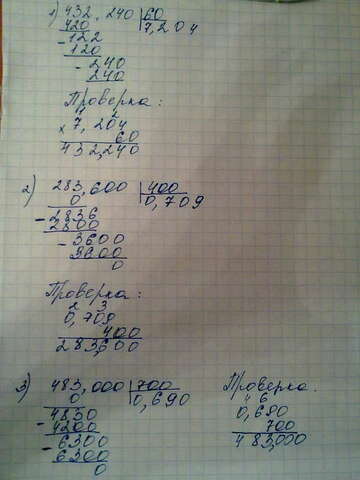 1) 432,240 | 60
420 7,204
- 122
120
- 240
240
Проверка:
× 7,204
60
432,240
2) 283,600 | 400
0 0,709
- 2836
2800
- 3600
3600
0
Проверка:
2 3
0,709
400
283,600
3) 483,000 | 700
0 0,690
- 4830
4200
- 6300
6300
0
Проверка.
6
0,690
700
483,000